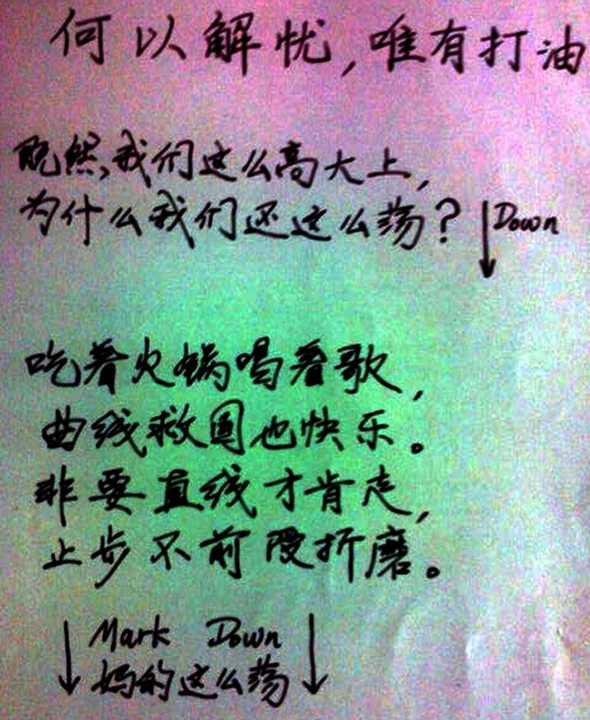 何以解忧,唯有打油
既然,我们这么高大上,
为什么我们还这么荡?↓Down
吃着火锅喝着歌,
曲线救国也快乐。
非要直线才肯走,
止步不前受折磨。
↓ Mark Down ↓
妈的这么荡